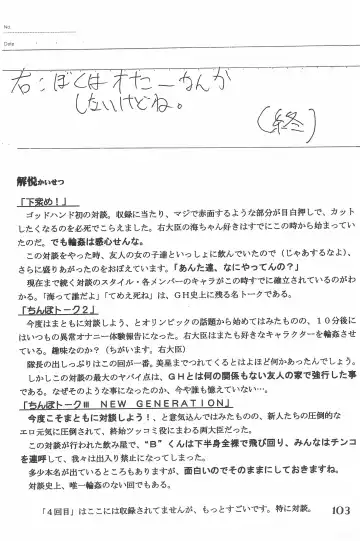 No.
Date
右：ぼくはオナニーなんか
しないけどね。
（終）
解悦かいせつ
「下衆め！」
ゴッドハンド初の対談。収録に当たり、マジで赤面するような部分が目白押しで、カット
したくなるのを必死でこらえました。右大臣の海ちゃん好きはすでにこの時から始まってい
たのだ。でも輪姦は感心せんな。
この対談をやった時、友人の女の子達といっしょに飲んでいたので（じゃあするなよ）、
さらに盛りあがったのをおぼえています。「あんた達、なにやってんの？」
現在まで続く対談のスタイル・各メンバーのキャラがこの時すでに確立されているのがわ
かる。「海って誰だよ」「てめえ死ね」は、ＧＨ史上に残る名トークである。
「ちんぽトーク２」
今度はまともに対談しよう、とオリンピックの話題から始めてはみたものの、１０分後に
はいつもの異常オナニー体験報告になった。右大臣はまたも好きなキャラクターを輪姦させ
ている。趣味なのか？（ちがいます。右大臣）
隊長の出しっぷりはこの回が一番。美星までつれてくるとはよほど何かあったんでしょう。
しかしこの対談の最大のヤバイ点は、ＧＨとは何の関係もない友人の家で強行した事
である。なぜそのような事になったのか、今や誰も憶えていない…。
「ちんぽトークⅢ　ＮＥＷ　ＧＥＮＥＲＡＴＩＯＮ」
今度こそまともに対談しよう！、と意気込んではみたものの、新人たちの圧倒的な
エロ元気に圧倒されて、終始ツッコミ役にまわる両大臣だった。
この対談が行われた飲み屋で、“Ｂ”くんは下半身全裸で飛び回り、みんなはチンコ
を連呼して、我々は出入り禁止になってしまった。
多少本名が出ているところもありますが、面白いのでそのままにしておきますね。
対談史上、唯一輪姦のない回でもある。
「４回目」はここには収録されてませんが、もっとすごいです。特に対談。
103